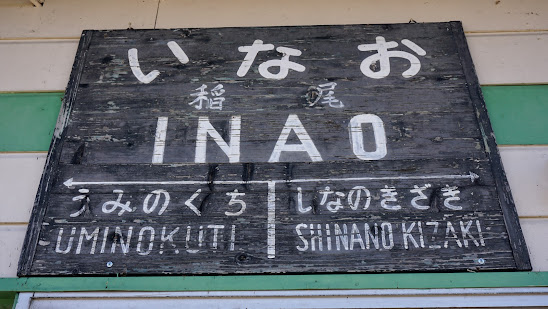 いなお
稲尾
INAO
うみのくち しなのきざき
UMINOKUTI SHINANO KIZAKI